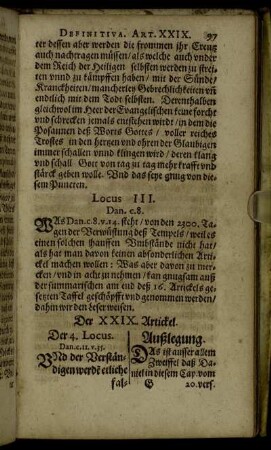 Definitiva. Art. XXIX. 97
ter dessen aber werden die frommen ihr Creutz
auch nachtragen müssen/ als welche auch vnder
dem Reich der Heiligen selbsten werden zu strei-
ten vnnd zu kämpffen haben/ mit der Sünde/
Kranckheiten/ mancherley Gebrechlichkeiten vñ
endtlich mit dem Todt selbsten. Derenthalben
gleichwol im Heer der Evangelischen keine forcht
vnd schrecken jemals entstehen wird/ in dem die
Posaunen deß Worts Gottes/ voller reiches
Trostes in den hertzen vnd ohren der Glaubigen
immer schallen vnnd klingen wird/ deren klang
vnd schall Gott von tag zu tag mehr krafft vnd
stärck geben wolle. Vnd das seye gnug von die-
sem Puncten.
Locus III.
Dan. c.8.
WAs Dan. c.8. v.14. steht/ von den 2300. Ta-
gen der Verwüstung deß Tempels/ weil es
einen solchen hauffen Vmbstände nicht hat/
als hat man davon keinen absonderlichen Arti-
ckel machen wollen: Was aber davon zu mer-
cken/ vnd in acht zu nehmen/ kan gnugsam auß
der summarischen am end deß 16. Artickels ge-
setzten Taffel geschöpfft vnd genommen werden/
dahin wir den Leser weisen.
Der XXIX. Artickel.
Der 4. Locus.
Dan. c.11. v.35.
VNd der Verstän-
digen werdẽ etliche
fal-
Außlegung.
DAs ist ausser allem
Zweiffel daß Da-
niel in diesem Cap. vom
G 20. vers.